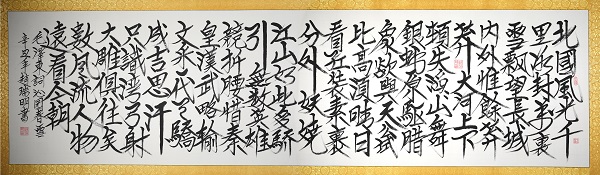 北國風光千
里冰封萬裏
雪飄望長城
内外惟餘莽
莽大河上下
頓失滔山舞
銀蛇原馳蠟
象欲與天公試
比高須晴日
看紅裝素裹
分外妖嬈
江山如此多嬌
引無數英雄
競折腰惜秦
皇漢武略輸
文采一代天驕
成吉思汗
只識彎弓射
大雕俱往矣
數風流人物
還看今朝
毛澤東詞沁園春雪
辛丑年趙瑞明書